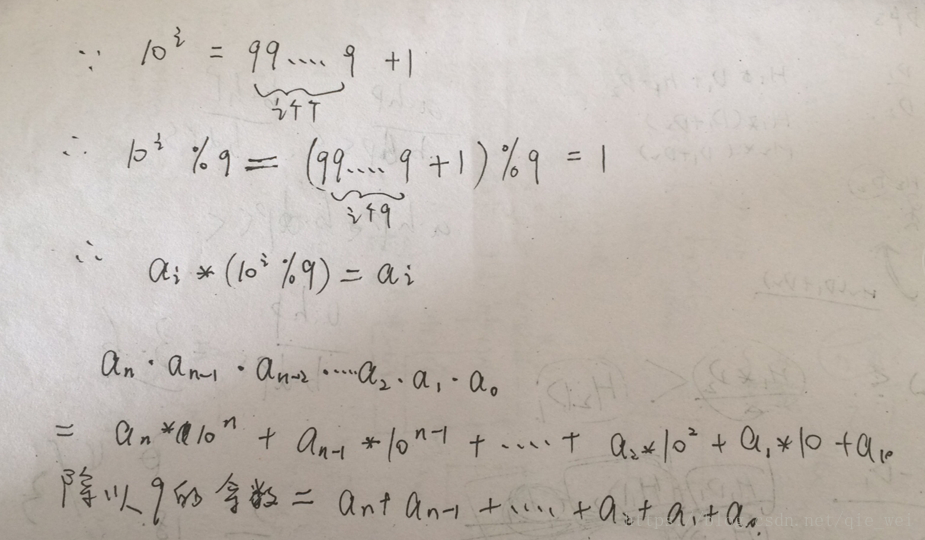 ∵ 10^i = 99....9 +1
i个9
∴ 10^i %9 = (99....9 +1)%9 = 1
i个9
∴ a_i * (10^i %9) = a_i
a_n · a_{n-1} · a_{n-2} ····· a_2 · a_1 · a_0
= a_n * 10^n + a_{n-1} * 10^{n-1} + ..... + a_2 * 10^2 + a_1 * 10 + a_0
除以9的余数 = a_n + a_{n-1} + ..... + a_2 + a_1 + a_0